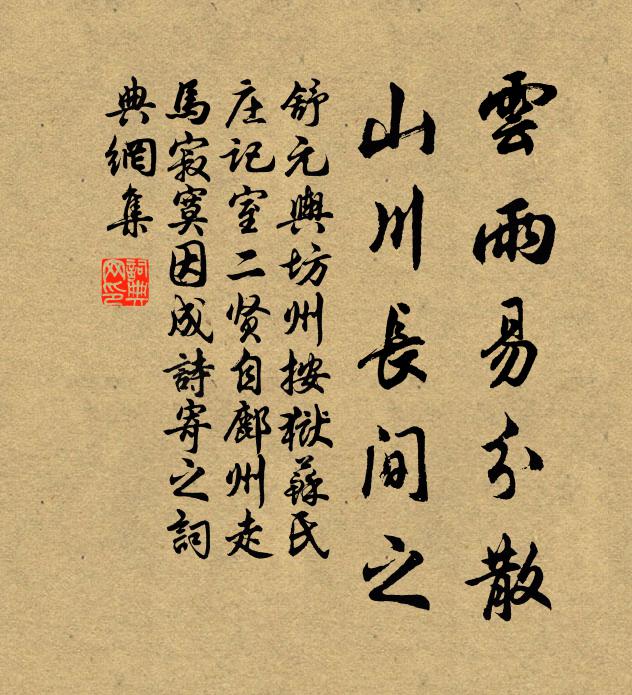 雲雨易分散
山川長間之
舒元輿坊州按獄蘇氏
庄记室二贤自鄜州走
馬寂寞因成詩寄之詞
典網集
詞典
网印